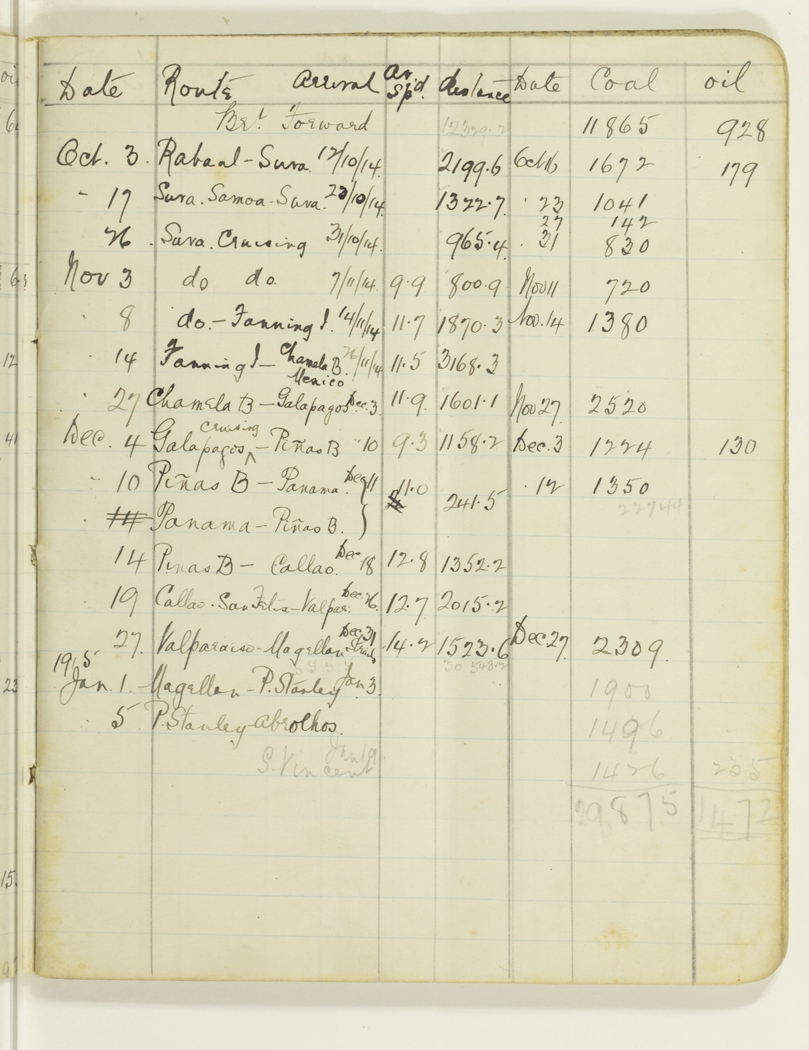 Date Route Arrival Av. Sp'd. distance Date Coal oil
Brt. Forward 11865 928
Oct. 3. Rabaul - Suva 12/10/14. 2199.6 Oct 16 1672 179
" 17 Suva. Samoa. Suva. 23/10/14. 1322.7. " 23 1041
27 142
26. Suva. Cruising 31/10/14. 965.4 " 31 830
Nov 3 do do. 7/11/14. 9.9 800.9 Nov 11 720
" 8 do. - Fanning I. 14/11/14 11.7 1870.3 Nov. 14 1380
" 14 Fanning I - Chamela B. Mexico 26/11/14 11.5 3168.3
" 27 Chamela B - Galapagos Dec. 3 11.9 1601.1 Nov 27. 2520
Dec. 4 Galapagos cruising - Piñas B " 10 9.3 1158.2 Dec. 3 1224 130
" 10 Piñas B - Panama. Dec 11 11.0 241.5 " 12 1350
22744
" 14 Panama - Piñas B.
14 Pinas B - Callao. Dec 18 12.8 1352.2
19 Callao. San Felix - Valpar. Dec. 26. 12.7 2015.2
27. Valparaiso - Magellan Straits Dec. 31 14.2 1523.6 Dec 27. 2309.
30 548.2
1915
Jan. 1. Magellan - P. Stanley Jan 3. 1900
" 5 P. Stanley - Abrolhos. 1496
Jan 19
S. Vincent 1426 235
29875 1472